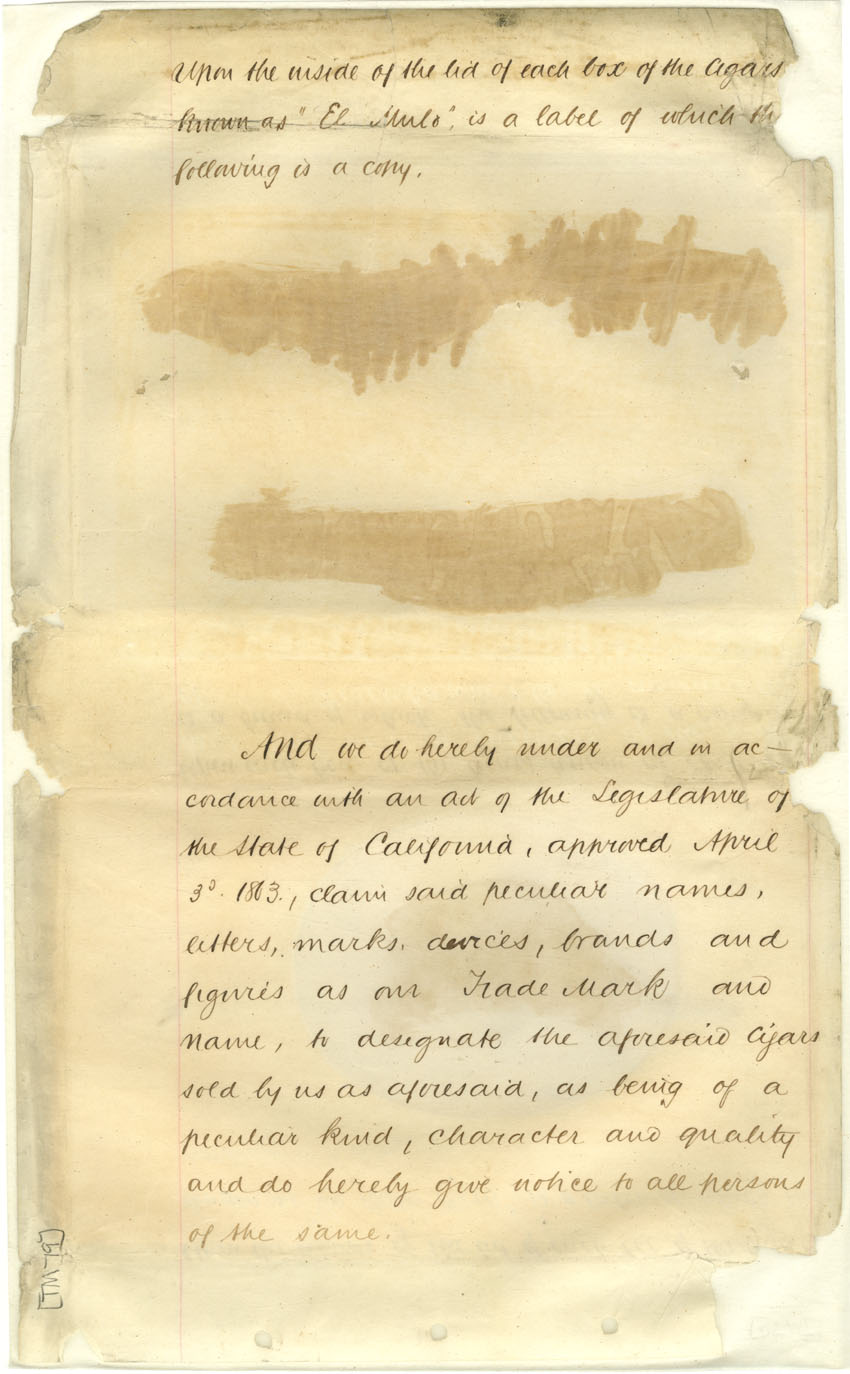 Upon the inside of the lid of each box of the Cigars
known as "El Mulo", is a label of which th
following is a copy.
And we do hereby under and in ac-
cordance with an act of the Legislature of
the State of California, approved April
3d. 1863., claim said peculiar names,
letters, marks, devices, brands and
figures as our Trade Mark and
name, to designate the aforesaid Cigars
sold by us as aforesaid, as being of a
peculiar kind, character and quality
and do hereby give notice to all persons
of the same.
[TM-79]